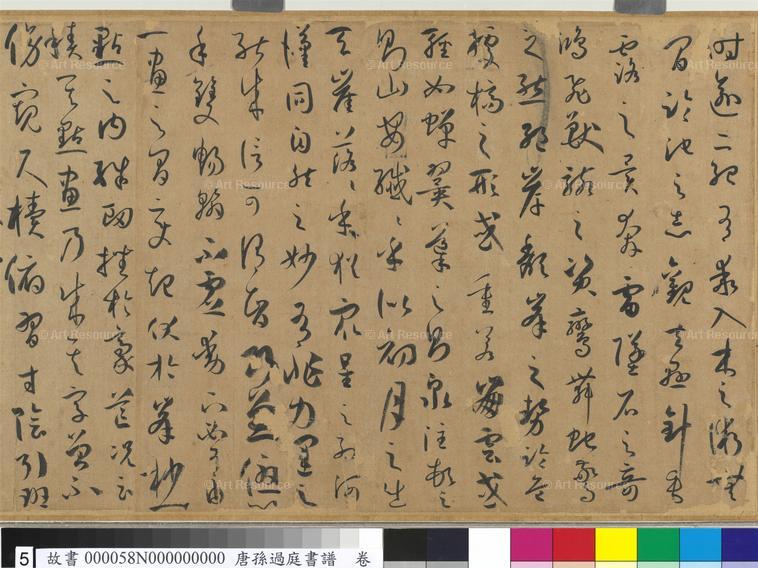 時逾二紀有乖入木之術無
間臨池之志觀夫懸針垂
露之異奔雷墜石之奇
鴻飛獸駭之資鸞舞蛇驚
之態絕岸頹峯之勢臨危
據槁之形或重若崩雲或
輕如蟬翼導之則泉注頓之
則山安纖〻乎似初月之出
天崖落〻乎猶眾星之列河
漢同自然之妙有非力運之
能成信可謂智巧兼優心
手雙暢翰不虛動下必有由
一畫之間變起伏於峯杪一
點之內殊衄挫於豪芒況云
積其點畫乃成其字曾不
傍窺尺櫝俯習寸陰引班
5 故書 000058N000000000 唐孫過庭書譜 卷
© Art Resource
© Art Resource
© Art Resource
© Art Resource
© Art Resource
© Art Resource
© Art Resource
© Art Resource
© Art Resource
© Art Resource
© Art Resource
© Art Resource